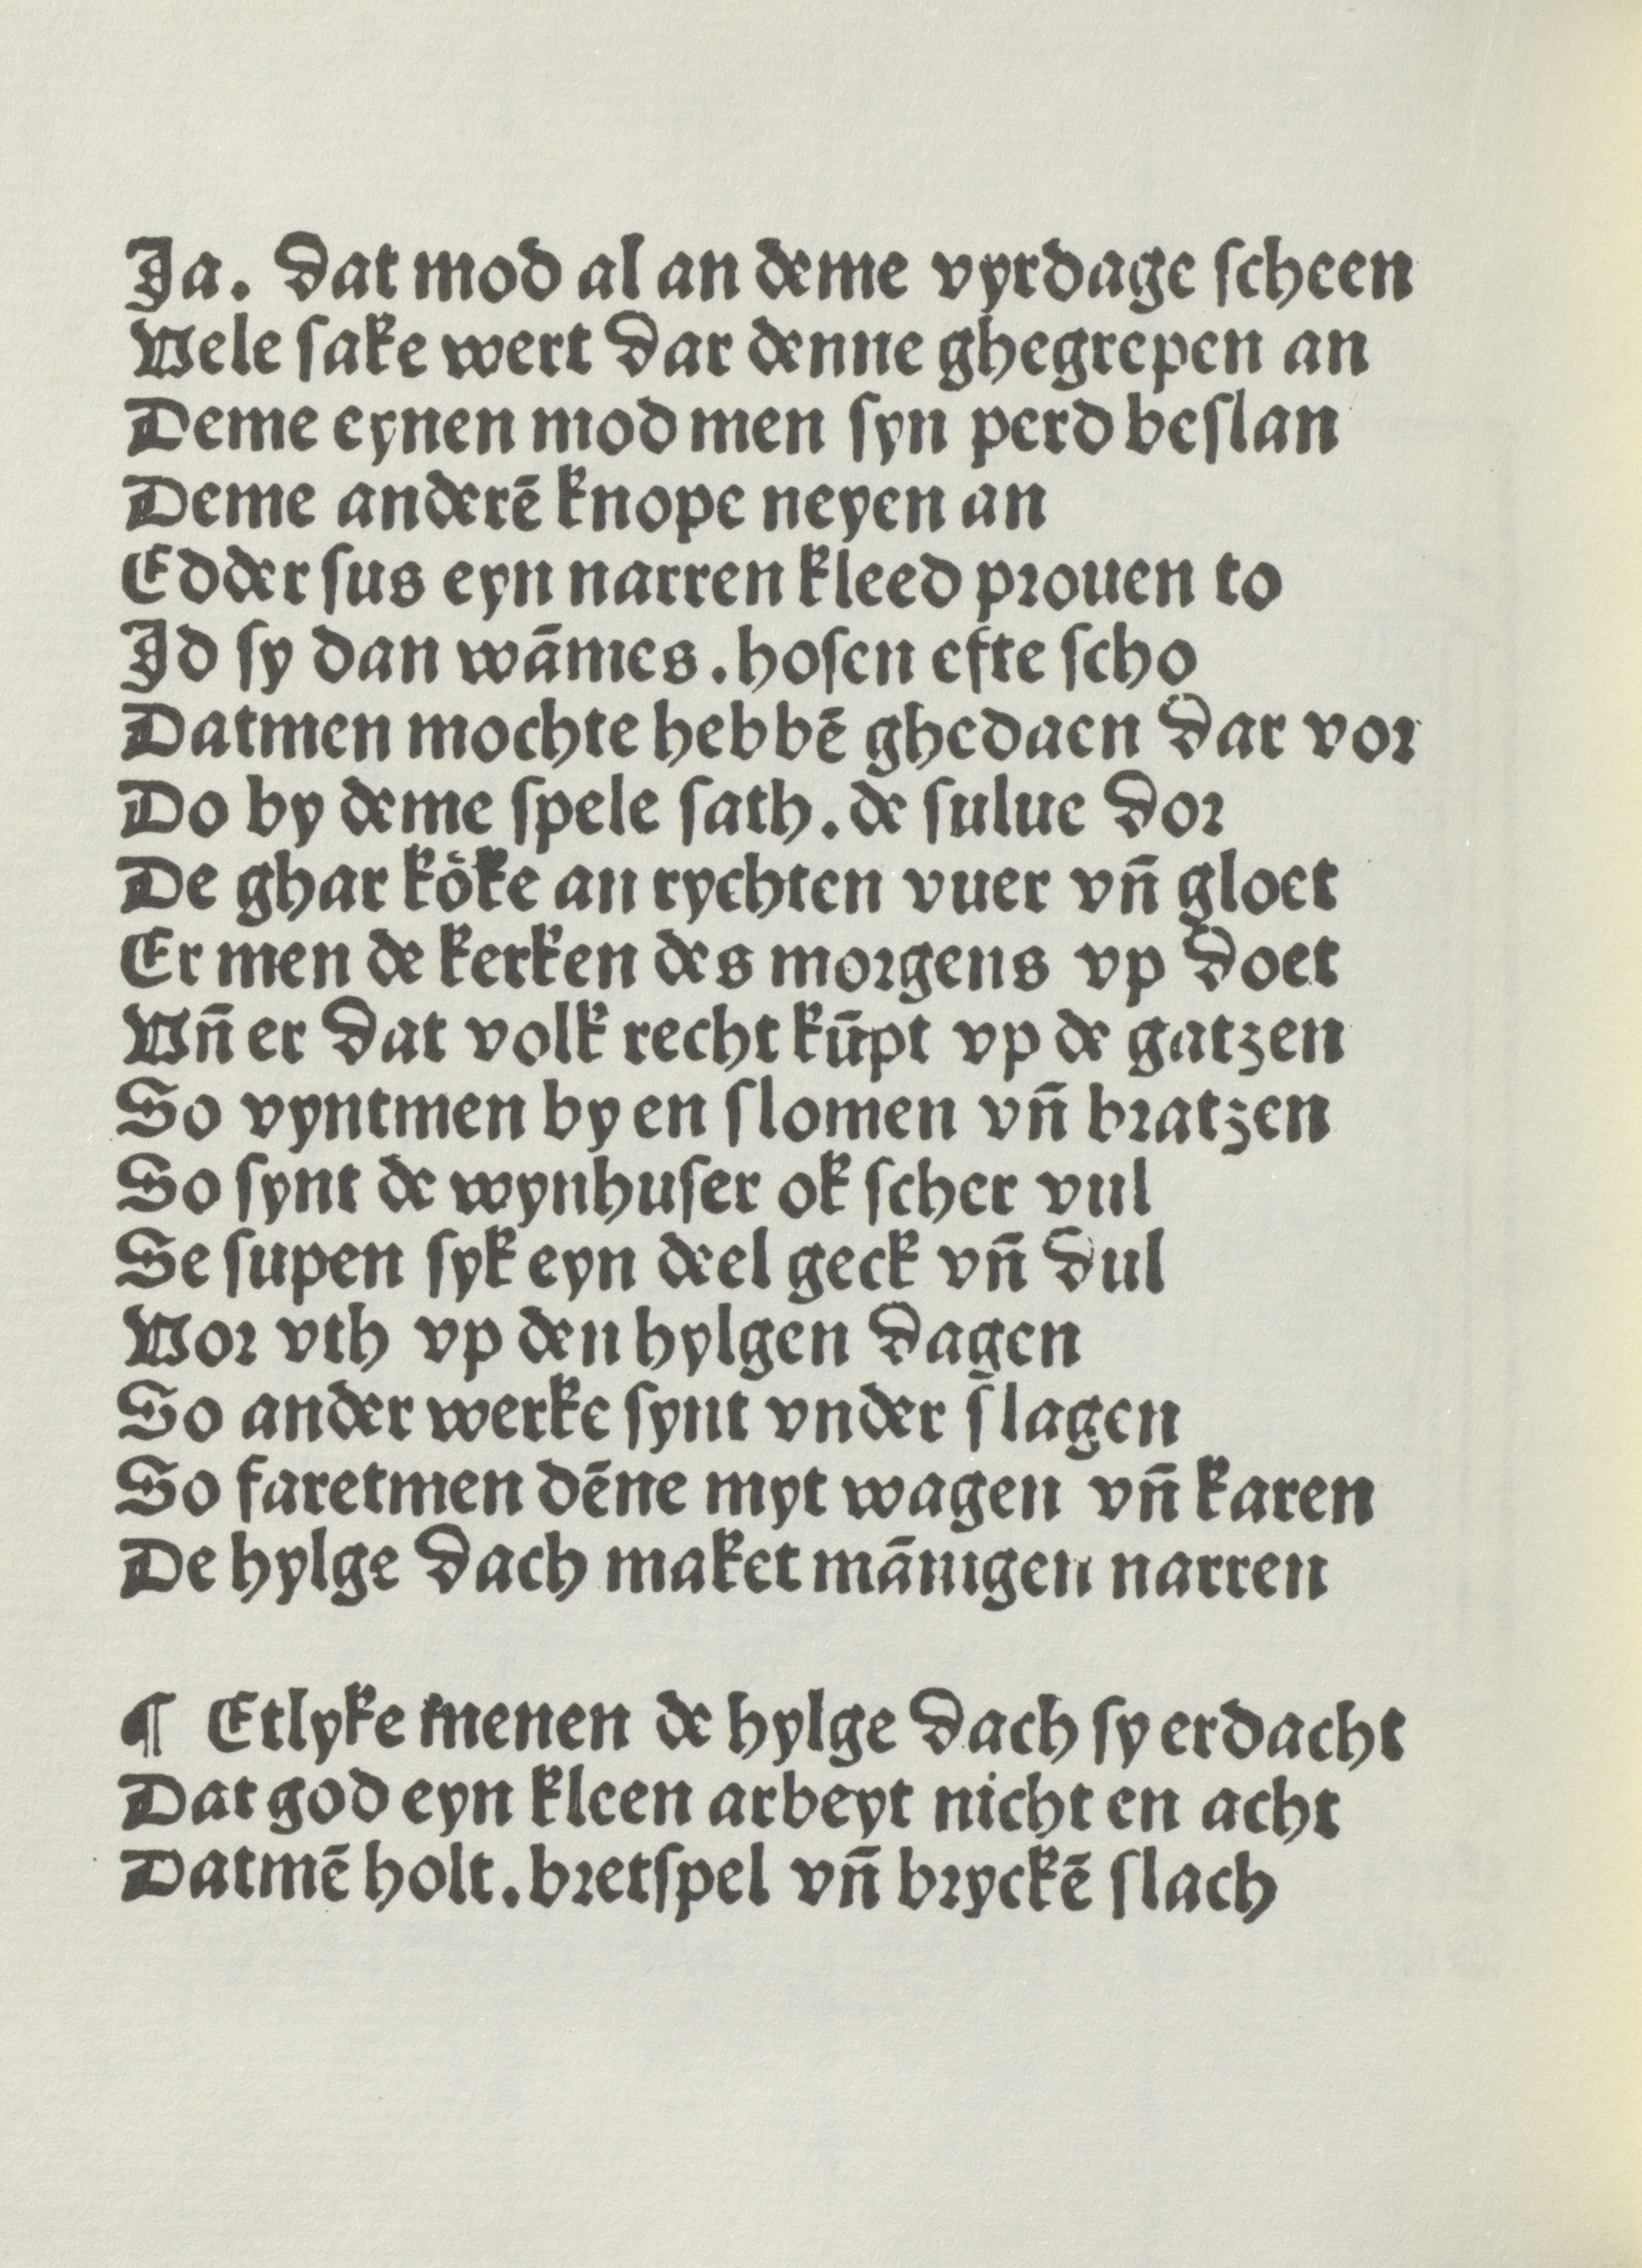 Ja. dat mod al an deme vyrdage scheen
Vele sake wert dar denne ghegrepen an
Deme eynen mod men syn perd beslan
Deme anderē knope neyen an
Edder sus eyn narren kleed prouen to
Jd sy dan wāmes. hosen efte scho
Datmen mochte hebbē ghedaen dar vor
Do by deme spele sath. de sulue dor
De ghar koͤke an rychten vuer vn̄ gloet
Er men de kerken des morgens vp doet
Vn̄ er dat volk recht kūpt vp de gatzen
So vyntmen by en slomen vn̄ bratzen
So synt de wynhuser ok scher vul
Se supen syk eyn deel geck vn̄ dul
Vor vth vp den hylgen dagen
So ander werke synt vnder slagen
So faretmen dēne myt wagen vn̄ karen
De hylge dach maket mānigen narren
¶ Etlyke menen de hylge dach sy erdacht
Dat god eyn kleen arbeyt nicht en acht
Datmē holt. bretspel vn̄ bryckē slach